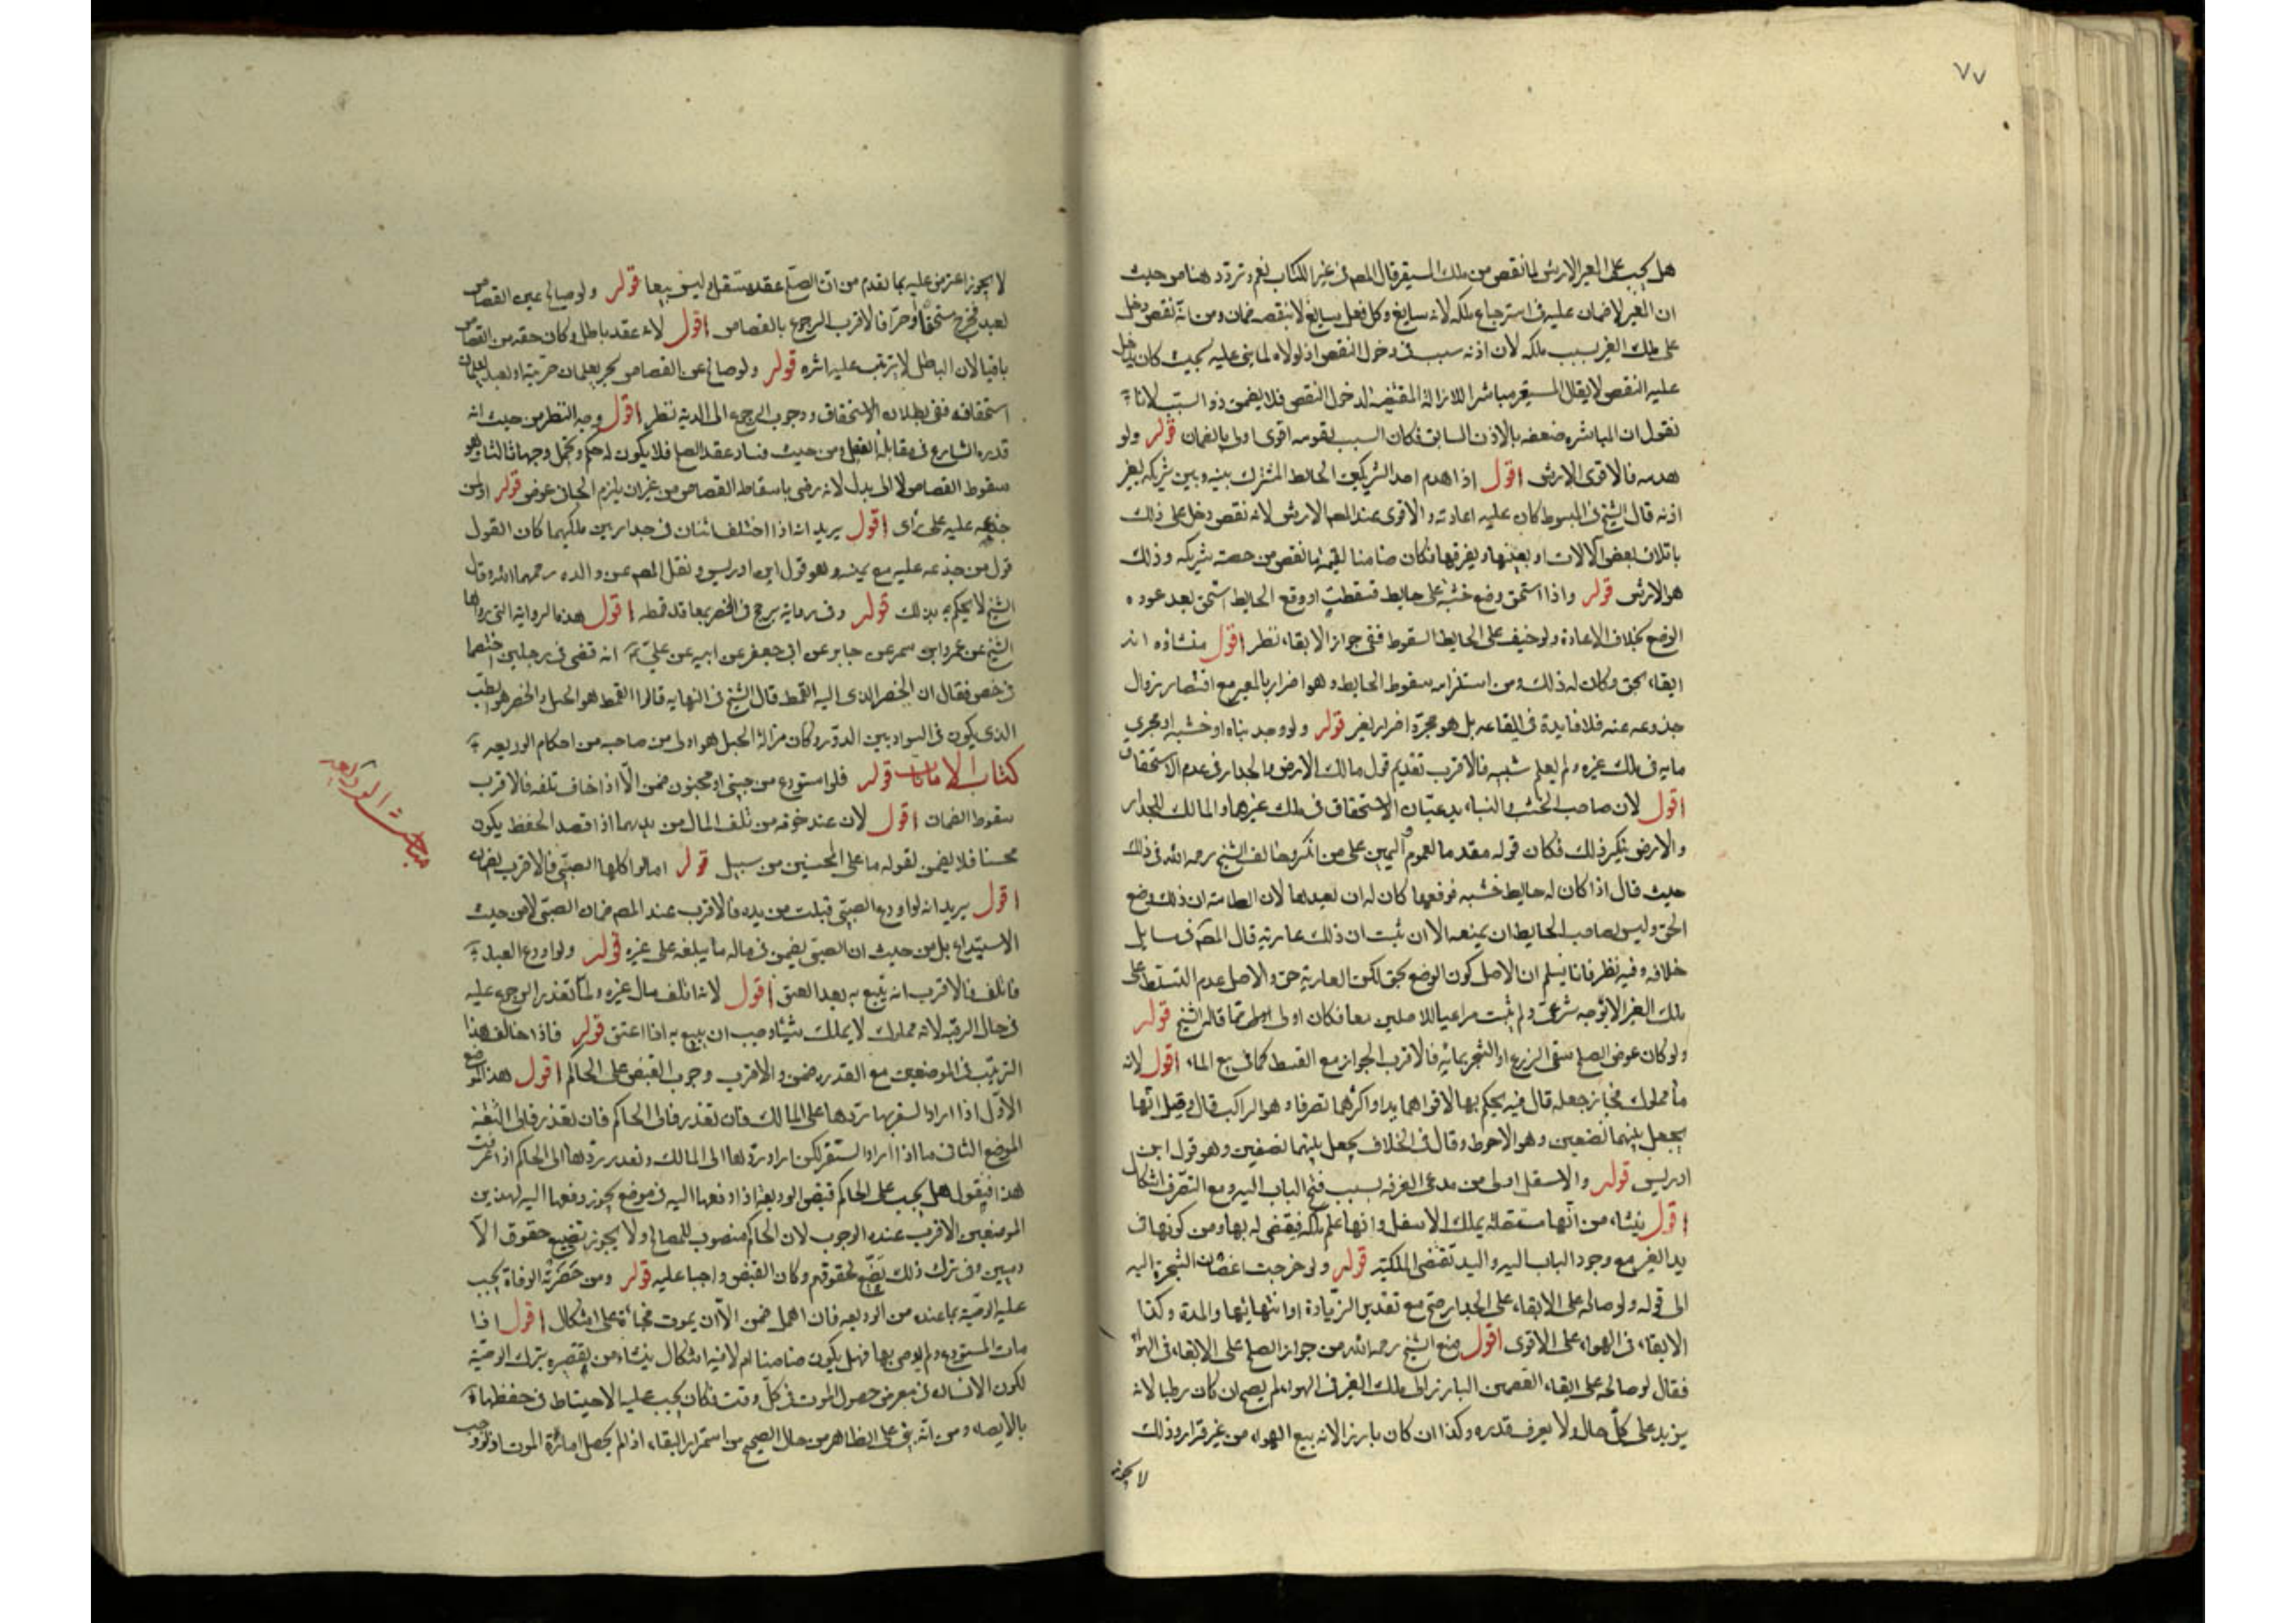 ٧٧
هل يجب على المعير الارش لما نقص من ملك المستعير قال المص في غير الكتاب نعم وتردد هنا من حيث
ان المعير لا ضمان عليه في استرجاع ملكه لانه سايغ وكل فعل سايغ لا يتعقبه ضمان ومن انه نقص دخل
على ملك الغير بسبب ملكه لان اذنه سبب في دخول النقص اذ لولاه لما بنى عليه بحيث كان يدخل
عليه النقص لا يقال المستعير مباشر اللازالة المقتضية لدخول النقص فلا يضمن ذو السبب لانا
نقول ان المباشره ضعفه بالاذن السابق فكان السبب لقوته اقوى اولى بالضمان قوله ولو
هدمه فالاقوى الارش اقول اذا هدم احد الشريكين الحائط المشترك بينه وبين شريكه بغير
اذنه قال الشيخ في المبسوط كان عليه اعادته والاقوى عند المص الارش لانه نقص دخل على ذلك
باتلاف بعض الالات او بعيبها وتفريقها فكان ضامنا لقيمة ما نقص من حصة شريكه وذلك
هو الارش قوله واذا استحق وضع خشبة على حايط فسقطت او وقع الحايط استحق بعد عوده
الوضع بخلاف الاعادة ولو خيف على الحايط السقوط ففي جواز الابقاء نظر اقول منشاؤه انه
ابقاء بحق وكان له ذلك ومن استلزامه سقوط الحايط وهو اضرار بالمعير مع اقتضاء زوال
جذوعه عنه فلا فايدة في ابقاعه بل هو مجرد اضرار لغير قوله ولو وجد بناه او خشبه او مجري
مايه في ملك غيره ولم يعلم سببه فالاقرب تقديم قول مالك الارض والجدار في عدم الاستحقاق
اقول لان صاحب الخشب والبناء يدعيان الاستحقاق في ملك غيرهما والمالك للجدار
والارض ينكر ذلك فكان قوله مقدما لعموم واليمين على من انكر وخالف الشيخ رحمه الله في ذلك
حيث قال اذا كان له حايط خشبه فوقعها كان له ان يعيدها لان الظاهر ان ذلك وضع
الحق وليس لصاحب الحايط ان يمنعه الا ان يثبت ان ذلك عارية قال المص في مسايل
خلافه وفيه نظر فانا نسلم ان الاصل كون الوضع بحق لكن العارية حق والاصل عدم التسلط على
ملك الغير الا بوجه شرعي ولم يثبت مراعيا للاصلين معا فكان اولى مما قاله الشيخ قوله
ولو كان عوض الصلح سقي الزرع او الشجر بمائه فالاقرب الجواز مع الضبط كما في بيع الماء اقول لانه
ماء مملوك فجاز جعله قال فيه يحكم بها لاقواهما يدا واكثرهما تصرفا وهو الراكب قال وقيل انها
يجعل بينهما نصفين وهو الاحوط وقال في الخلاف يجعل بينهما نصفين وهو قول ابن
ادريس قوله والاسفل اولى من مدعى الغرفه بسبب فتح الباب اليه ومع التصرف اشكال
اقول ينشاء من انها متصلة بملك الاسفل وانها على ملكه فيقضى له بها ومن كونها في
يد الغير مع وجود الباب اليه واليد تقتضى الملكية قوله ولو خرجت اغصان الشجرة اليه
الى قوله ولو صالحه على الابقاء على الجدار صح مع تقدير الزيادة او انتهائها والمدة وكذا
الابقاء في الهواء على الاقوى اقول منع الشيخ رحمه الله من جواز الصلح على الابقاء في الهواء
فقال لو صالحه على ابقاء الغصن البارز الى ملك الغير في الهواء لم يصح ان كان رطبا لانه
يزيد على كل حال ولا يعرف قدره وكذا ان كان يابسا لانه بيع الهواء من غير قرار وذلك
لا يجوز
لا يجوز اعترض عليه بما تقدم من ان الصلح عقد مستقل وليس بيعا قوله ولو صالح عن القصاص
لعبد فخرج مستحقا او حرا فالاقرب الرجوع بالقصاص اقول لانه عقد باطل وكان حقه من القصاص
باقيا لان الباطل لا يترتب عليه اثره قوله ولو صالح عن القصاص بحر يعلمان حريته او بعبد يعلمان
استحقاقه ففي بطلان الاستحقاق ووجوب الرجوع الى الدية نظر اقول وجه النظر من حيث انه
قدره الشارع في مقابلة الفعل ومن حيث فساد عقد الصلح فلا يكون له حكم ويحتمل وجها ثالثا وهو
سقوط القصاص لا الى بدل لانه رضى باسقاط القصاص من غير ان يلزم الجاني عوض قوله او لمن
جذعه عليه على راى اقول يريد انه اذا اختلف اثنان في جدار بين ملكيهما كان القول
قول من جذعه عليه مع يمينه وهو قول ابن ادريس ونقل المص عن والده رحمهما الله وقال
الشيخ لا يحكم به بذلك قوله وفي رواية يرجح في الخص بمعاقد قمطه اقول هذه الرواية التي رواها
الشيخ عن عمرو بن شمر عن جابر عن ابي جعفر عن ابيه عن علي ع انه قضى في رجلين اختصما
في خص فقال ان الخص للذى اليه القمط قال الشيخ في النهايه قالوا القمط هو الحبل والخص هو الطن
الذى يكون في السواد بين الدور وكان من اله الحبل هو اولى من صاحبه من احكام الوديعه
كتاب الامانات قوله فلو استودع من صبي او مجنون ضمن الا اذا خاف تلفه فالاقرب
سقوط الضمان اقول لان عند خوفه من تلف المال من يدهما اذا قصد الحفظ يكون
محسنا فلا يضمن لقوله ما على المحسنين من سبيل قوله اما لو اكلها الصبي فالاقرب الضمان
اقول يريد انه لو اودع الصبي فتلف من يده فالاقرب عند المص ضمان الصبي لا من حيث
الاستيداع بل من حيث ان الصبي يضمن في ماله ما يتلفه على غيره قوله ولو اودع العبد
فاتلف فالاقرب انه يتبع به بعد العتق اقول لانه اتلف مال غيره ولما تعذر الرجوع عليه
في حال الرقيه لانه مملوك لا يملك شيئا وجب ان يتبع به اذا اعتق قوله فاذا خالف هذا
الترتيب في الموضعين مع القدره ضمن والاقرب وجوب القبض على الحاكم اقول هذا الموضع
الاول اذا اراد السفر بها ردها على المالك فان تعذر فالى الحاكم فان تعذر فالى الثقة
الموضع الثاني ما اذا اراد السفر لكن اراد ردها الى المالك وتعذر ردها الى الحاكم اذا عرفت
هذا فيقول هل يجب على الحاكم قبض الوديعة اذا دفعها اليه في موضع يجوز دفعها اليه لهذين
الموضعين الاقرب عنده الوجوب لان الحاكم منصوب للمصالح ولا يجوز تضييع حقوق الآ
دميين وفي ترك ذلك تضييع لحقوقهم وكان القبض واجبا عليه قوله ومن حضرته الوفاة يجب
عليه الوصية بما عنده من الوديعه فان اهمل ضمن الا ان يموت فجأة على اشكال اقول اذا
مات المستودع ولم يوص بها فهل يكون ضامنا ام لا فيه اشكال ينشاء من تقصيره بترك الوصية
لكون الانسان في معرض حصول الموت في كل وقت فكان يجب عليه الاحتياط في حفظها
بالايصاء ومن انه بنى على الظاهر من حال الصحيح من استمرار البقاء، اذ لم يحصل امارة الموت
مبحث الوديعه